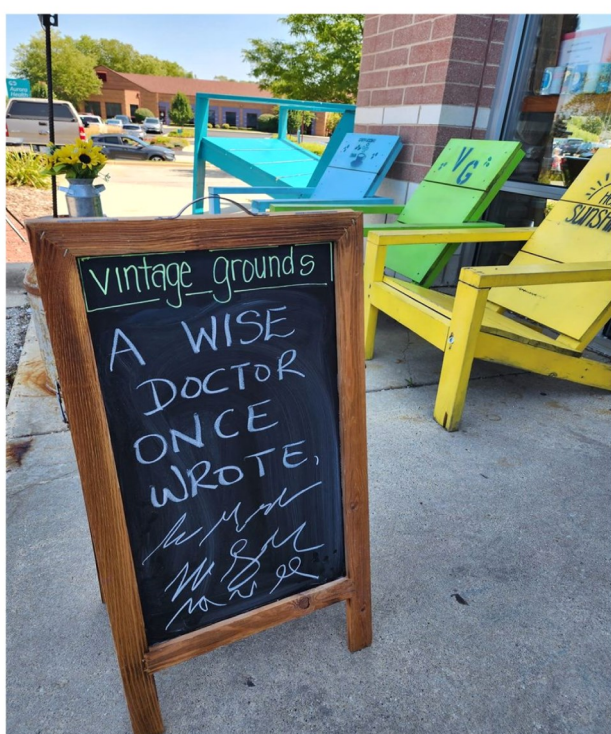 vintage grounds
A WISE
DOCTOR
ONCE
WROTE,
VG
sunshine
Aurora